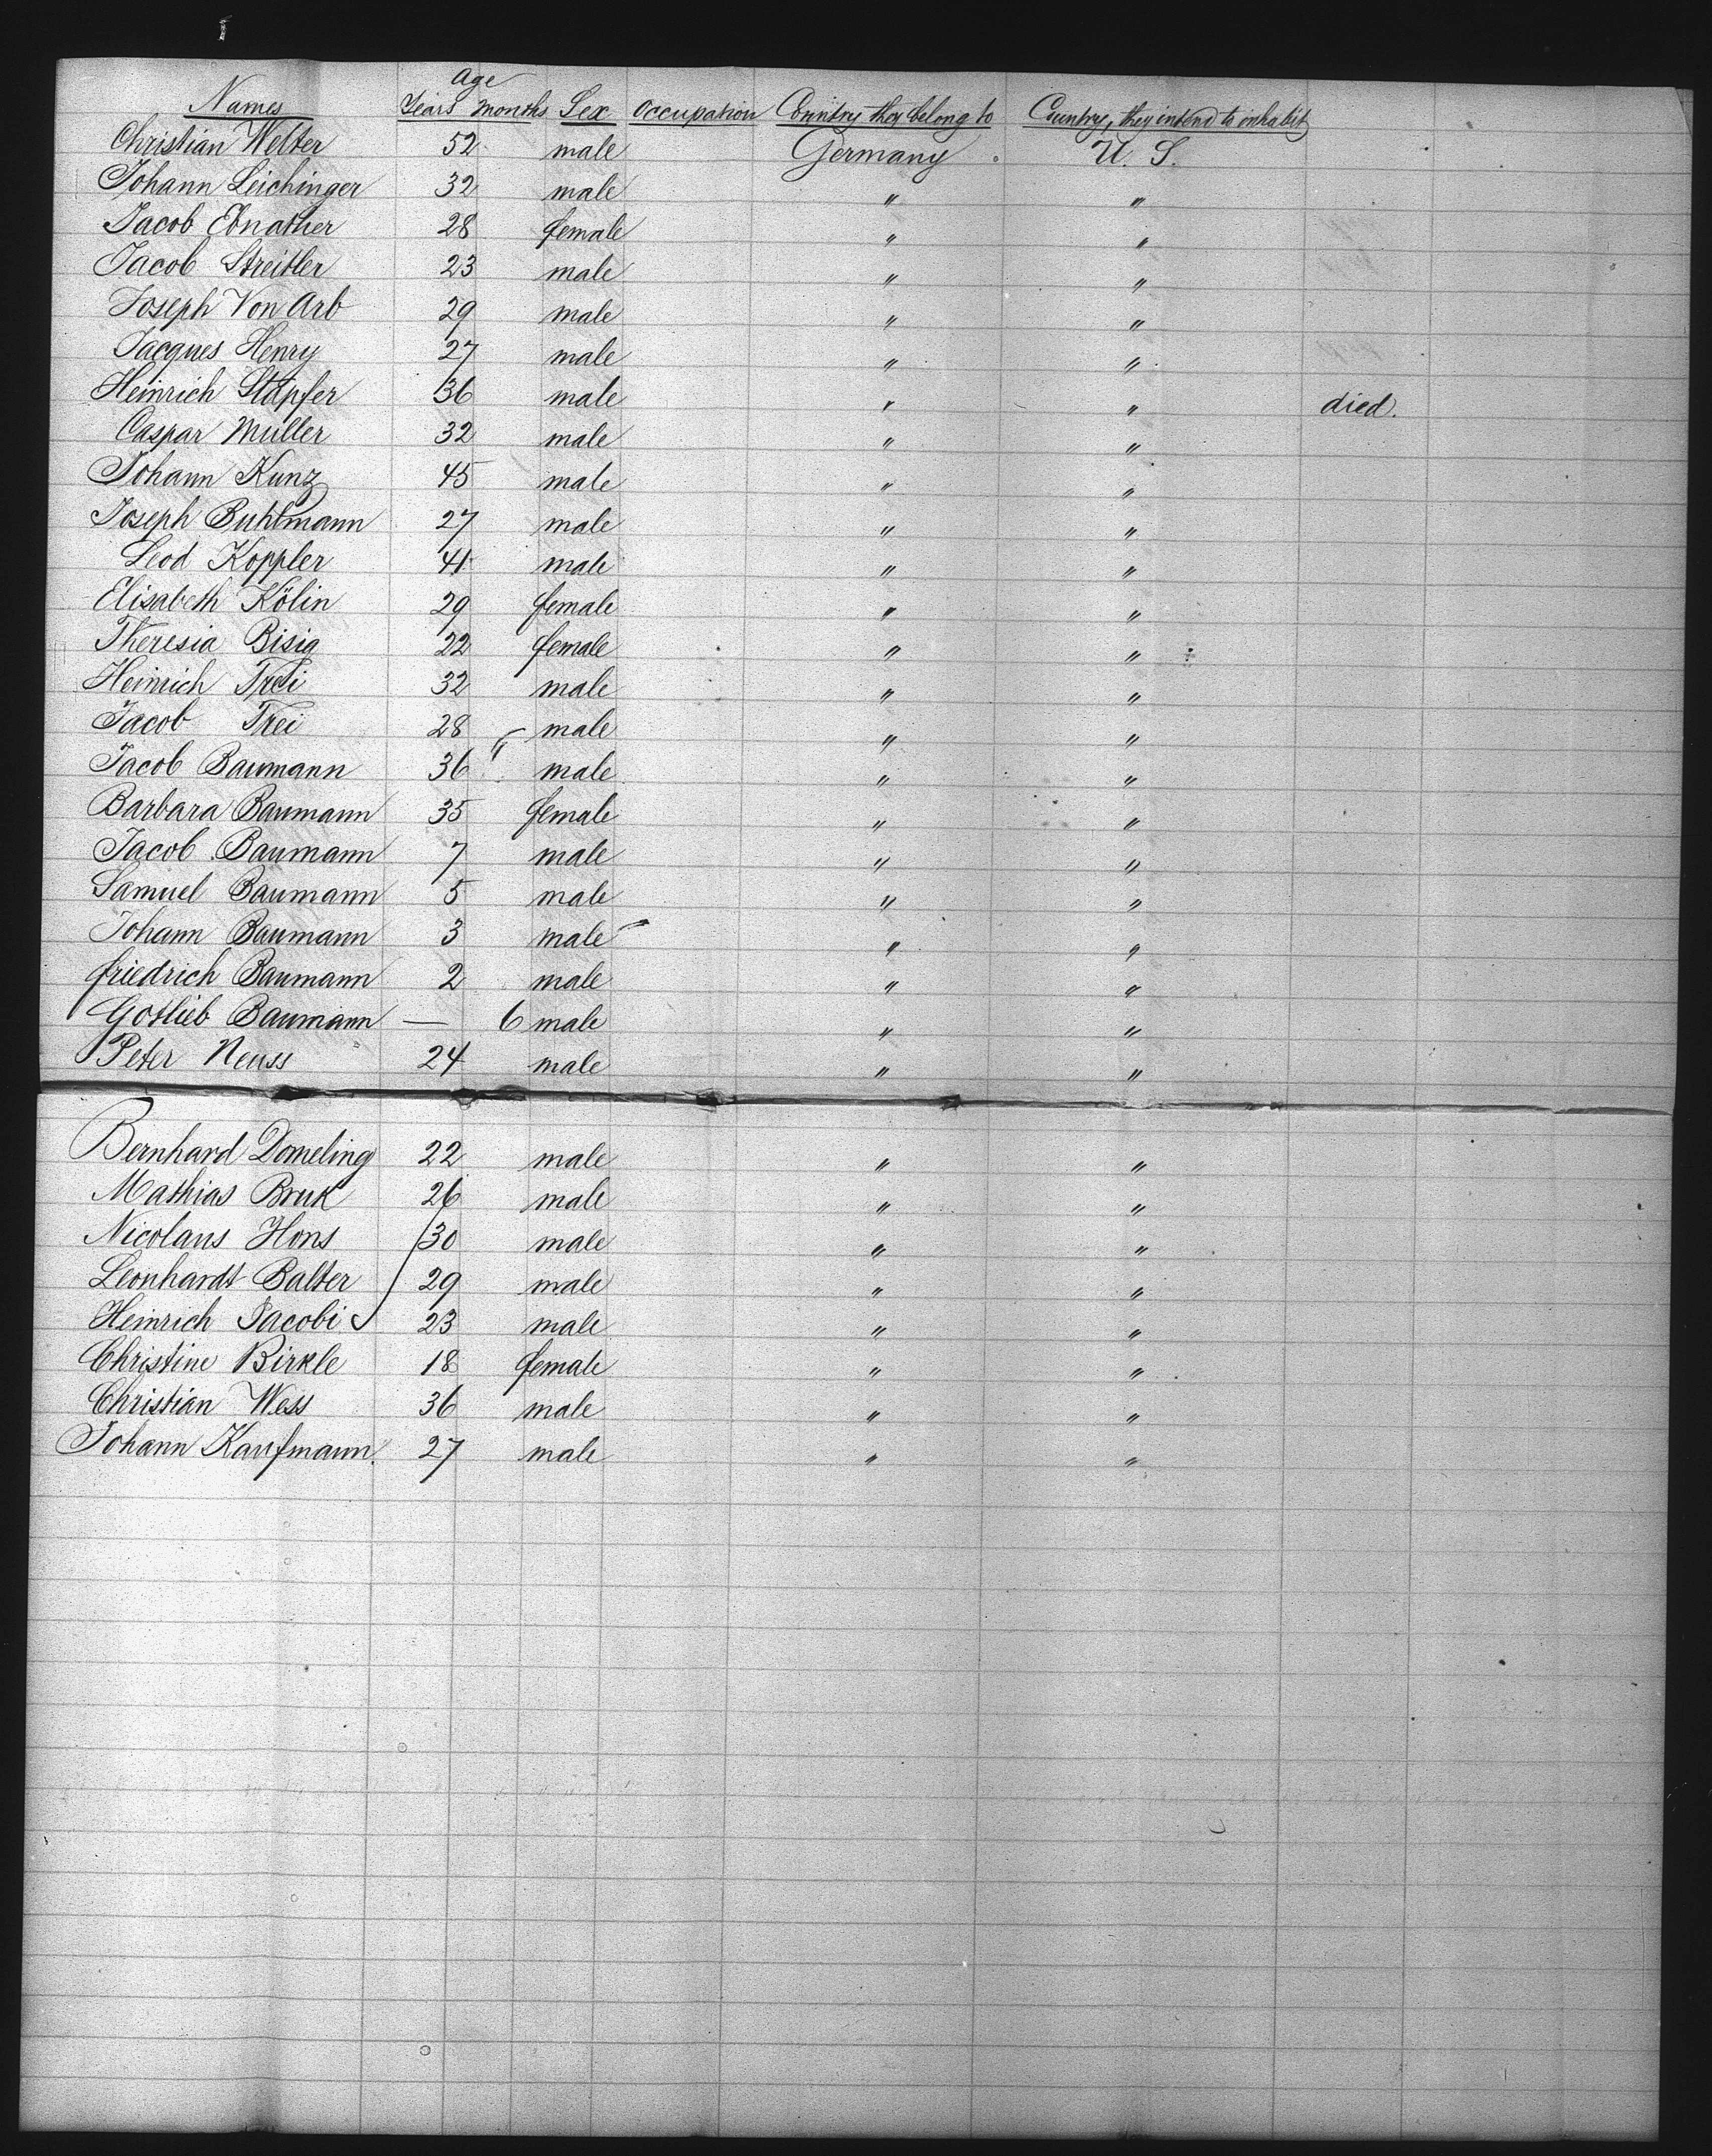 Age
Names Years Months Sex Occupation Country they belong to Country, they intend to inhabit
Christian Welter 52 male Germany U. S.
Johann Leichinger 32 male " "
Jacob Ebnather 28 female " "
Jacob Streitler 23 male " "
Joseph Von Arb 29 male " "
Jacques Henry 27 male " "
Heinrich Stapfer 36 male " " died.
Caspar Muller 32 male " "
Johann Kunz 45 male " "
Joseph Buhlmann 27 male " "
Leod Koppler 41 male " "
Elisabeth Kölin 29 female " "
Theresia Bisig 22 female " "
Heinrich 32 male " "
Jacob 28 male " "
Jacob Baumann 36 male " "
Barbara Baumann 35 female " "
Jacob Baumann 7 male " "
Samuel Baumann 5 male " "
Johann Baumann 3 male " "
friedrich Baumann 2 male " "
Gotlieb Baumann — 6 male " "
Peter Neuss 24 male " "
Bernhard Domeling 22 male " "
Mathias Bruk 26 male " "
Nicolaus Hons 30 male " "
Leonhardt Balter 29 male " "
Heinrich Jacobi 23 male " "
Christine Birkle 18 female " "
Christian Wess 36 male " "
Johann Kaufmann. 27 male " "